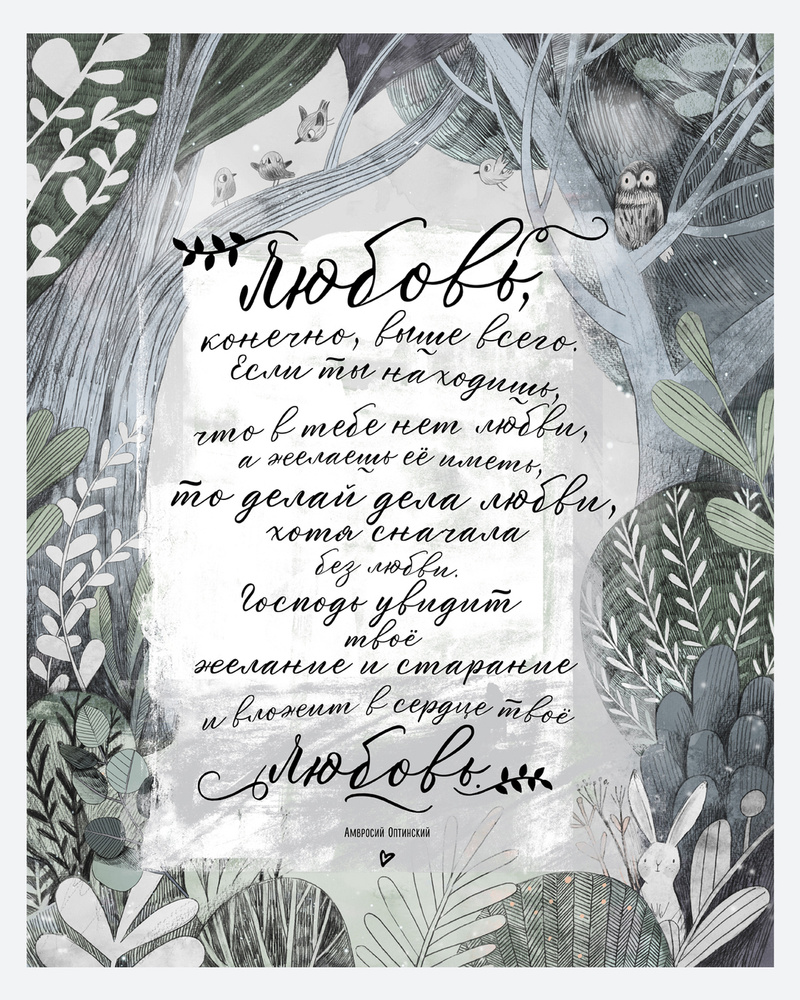 Любовь,
конечно, выше всего.
Если ты находишь,
что в тебе нет любви,
а желаешь её иметь,
то делай дела любви,
хотя сначала
без любви.
Господь увидит
твоё
желание и старание
и вложит в сердце твоё
любовь.
Амвросий Оптинский